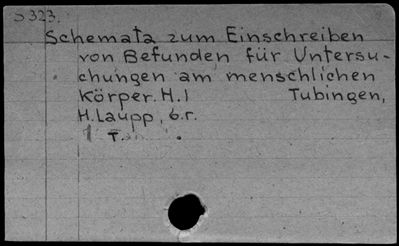 S 323.
Schemata zum Einschreiben
von Befunden für Untersu-
chungen am menschlichen
Körper. H.I Tubingen,
H. Laupp, o.r.